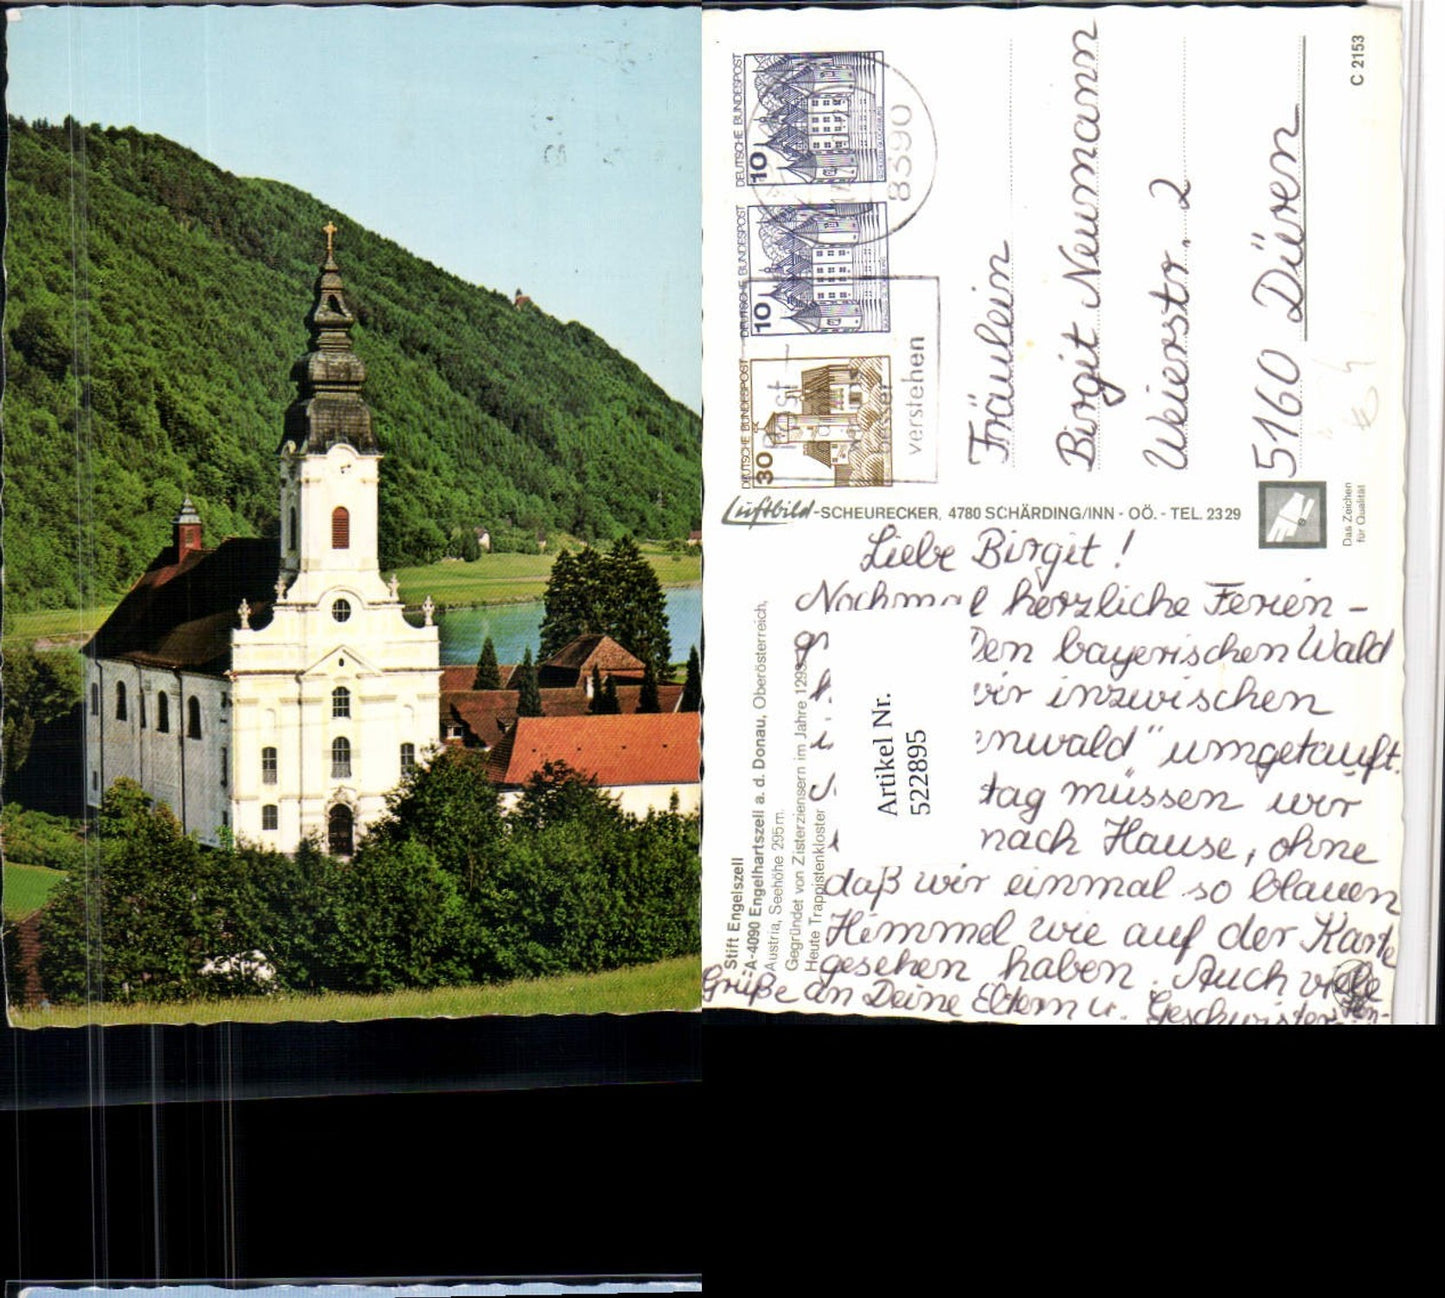 DEUTSCHE BUNDESPOST
10
DEUTSCHE BUNDESPOST
10
DEUTSCHE BUNDESPOST
30
8390
Post
verstehen
Fräulein
Birgit Neumann
Weierstr. 2
5160 Düren
C 2153
Luftbild-SCHEURECKER, 4780 SCHÄRDING/INN - OÖ. - TEL. 2329
Das Zeichen
für Qualität
Stift Engelszell
A-4090 Engelhartszell a. d. Donau, Oberösterreich,
Austria, Seehöhe 295 m.
Gegründet von Zisterziensern im Jahre 1293
Heute Trappistenkloster
Artikel Nr.
522895
Liebe Birgit!
Nochmal herzliche Ferien-
den bayerischen Wald
wir inzwischen
enwald" umgetauft.
tag müssen wir
nach Hause, ohne
daß wir einmal so blauen
Himmel wie auf der Karte
gesehen haben. Auch viele
Grüße an Deine Eltern u. Geschwister